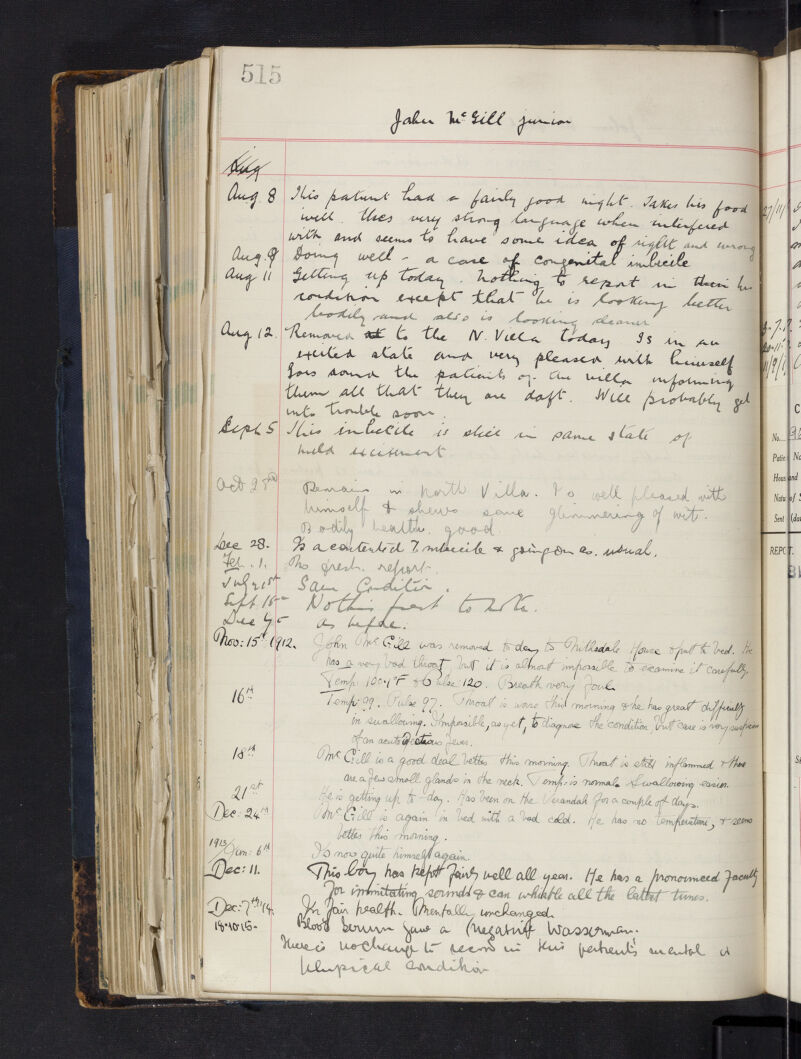 515
John McGill junior
Aug
Aug. 8 This patient had a fairly good night. Takes his food
well. Uses very strong language when interfered
with and seems to have some idea of right and wrong
Aug. 9 Doing well - a case of congenital imbecile
Aug 11 Getting up today. Nothing to report in his
condition except that he is looking better
bodily and also is looking cleaner
Aug 12. Removed to the N. Villa today Is in an
excited state and very pleased with himself
Goes round the patients of the villa informing
them all that they are daft. Will probably get
into trouble soon.
Sept 5 This imbecile is still in same state of
mild excitement
Oct Remains in North Villa. Is well pleased with
himself & shews some glimmering of wit.
Bodily health good.
Dec 28. Is a contented imbecile & going on as usual.
Feb. 1. No fresh report.
July 21st Same Condition.
Sept 15 Nothing fresh to note.
Dec as before.
Nov: 15th 1912. John McGill was removed to day to House & put to bed. He
has a very bad throat, but it is almost impossible to examine it carefully.
Temp 100.1°F Pulse 120. Breath very foul.
16th Temp: 99. Pulse 97. Throat is worse this morning & he has great difficulty
in swallowing. Impossible, as yet, to diagnose the condition but case is very suspicious
of an acute fever.
18th McGill is a good deal better this morning. Throat is still inflammed & there
are a few small glands in the neck. Temp: is normal & swallowing easier.
21st He is getting up to-day. Has been on the Verandah for a couple of days.
Dec: 24th McGill is again in bed with a bad cold. He has no temperature, & seems
better this morning.
1913 Jan: 6th Is now quite himself again.
Dec: 11. This boy has kept fairly well all year. He has a pronounced faculty
for immitating sounds & can whistle all the latest tunes.
Dec: 7th '14. In fair health. Mentally unchanged.
18.10.15. Blood Serum gave a (negative) Wasserman.
There is no change to record in this patient's mental or
physical condition